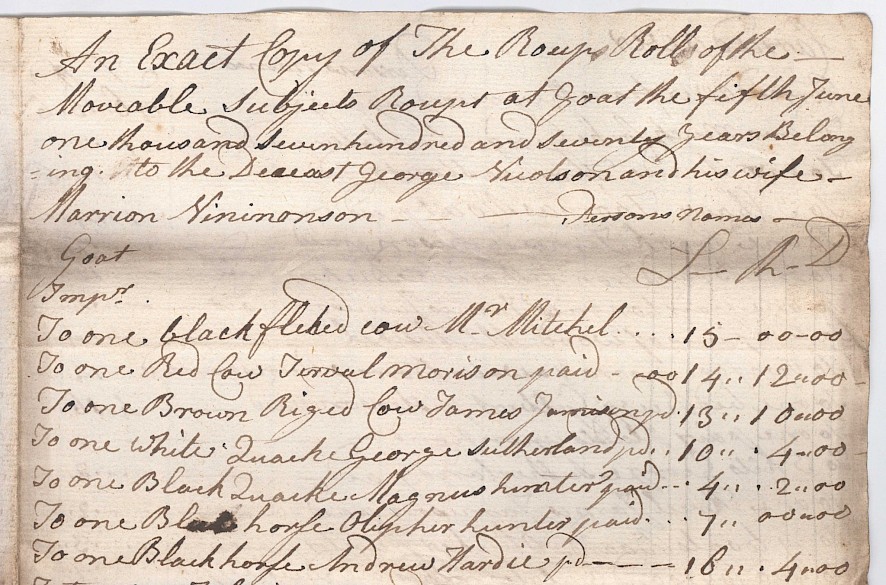 An Exact Copy of The Roups Rolls of the
Moveable Subjects Roupt at Goat the fifth June
one thousand sevenhundred and seventy years Belong
-ing to the Deceast George Nicolson and his wife
Marrion Nininonson - - Persons names
Goat L - Sh - D
Impr.
To one black fleked cow Mr Mitchel .... 15 - 00-00
To one Red Cow Terval morison paid - 0014,, 12,,00
To one Brown Riged Cow James Jamison pd. 13,, 10,,00
To one white Quacke George Sutherland pd.. 10,, . 4-00
To one Black Quacke Magnus hunter paid ... 4,, . 2,,00
To one horse Olipher hunter paid ... 7,, 00,,00
To one Black horse Andrew Hardie pd - - - 16,, . 4,,00